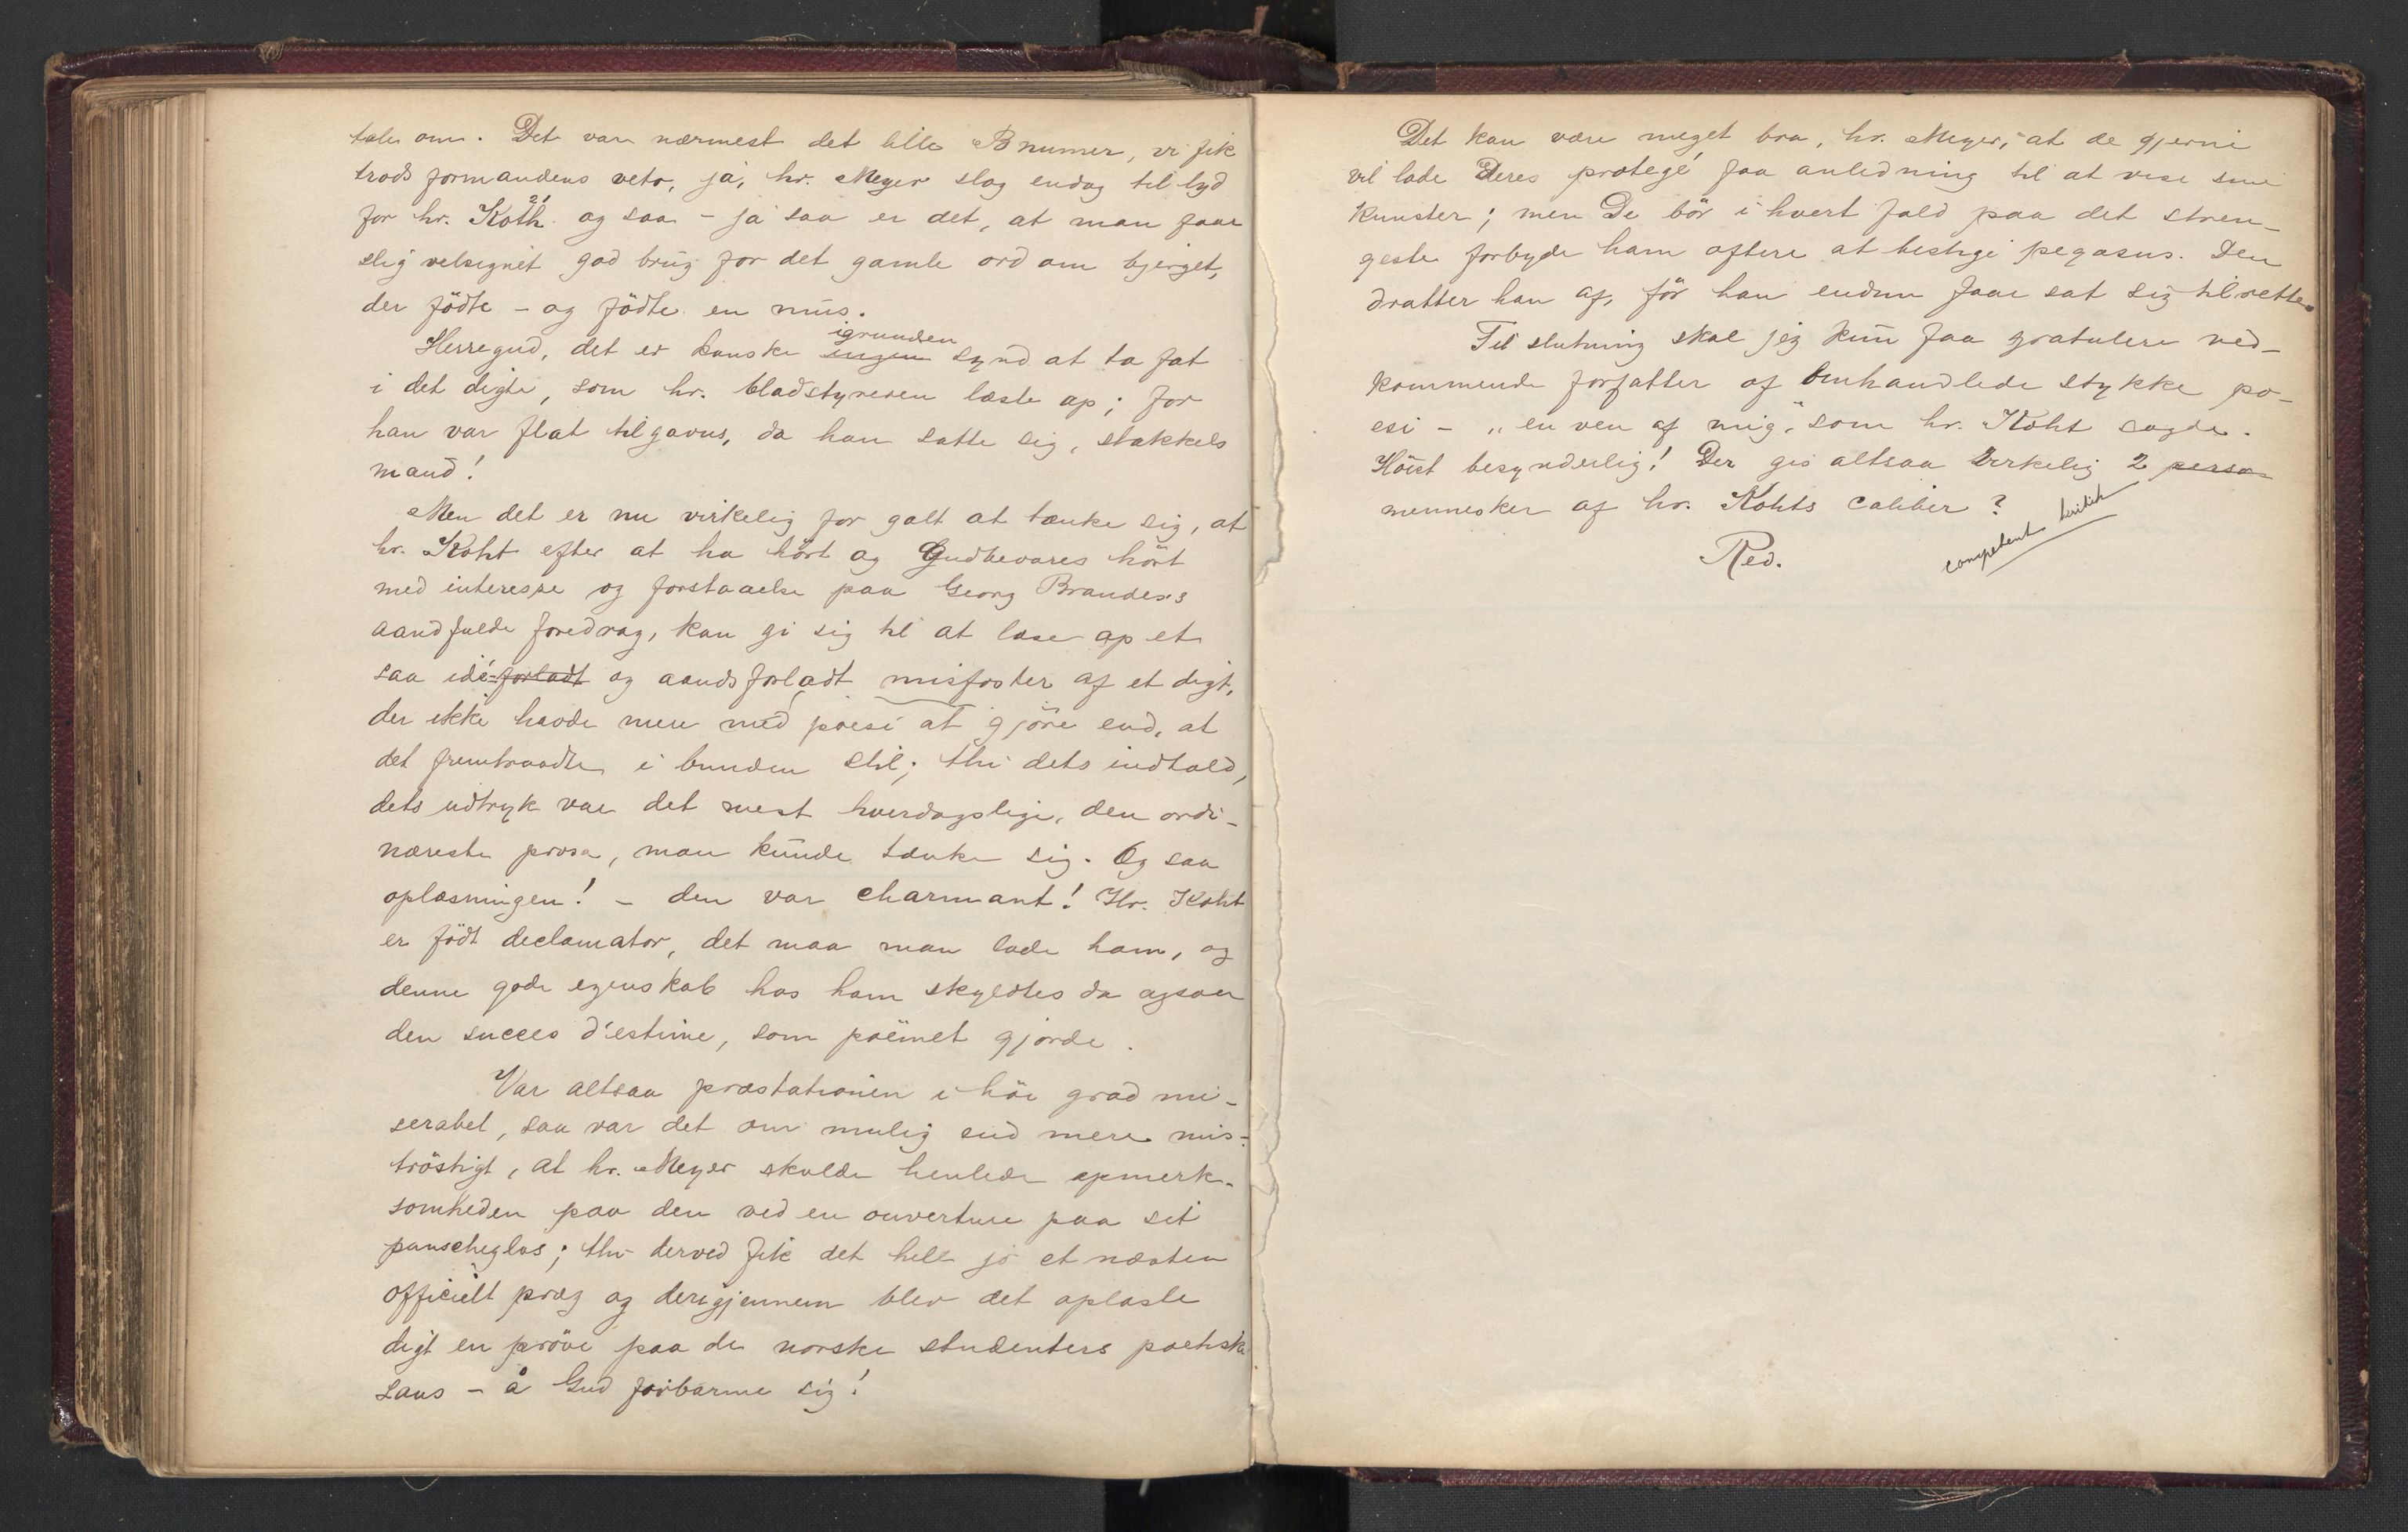 tale om. Det var nærmest det lille B numer, vi fik
trods formandens veto, ja, hr. Meyer slog endog til lyd
for hr. Koth og saa - ja saa er det, at man faar
slig velsignet god brug for det gamle ord om bjerget,
der födte - og födte en mus.
Herregud, det er kanske ingen igrunden synd at ta fat
i det digte, som hr. bladstyreren læste op; for
han var flat tilgavns, da han satte sig, stakkels
mand!
Men det er nu virkelig for galt at tænke sig, at
hr. Koht efter at ha hört og Gudbevares hört
med interesse og forstaaelse paa Georg Brandes's
aandfulde foredrag, kan gi sig til at læse op et
saa idé-forladt og aandsforladt misfoster af et digt,
der ikke havde mere med poesi at gjöre end, at
det fremtraadte i bunden stil; thi dets indhold,
dets udtryk var det mest hverdagslige, den ordi-
næreste prosa, man kunde tænke sig. Og saa
oplæsningen! - den var charmant! Hr. Koht
er födt declamator, det maa man lade ham, og
denne gode egenskab hos ham skyldtes da ogsaa
den succes d'estime, som poëmet gjorde.
Var altsaa præstationen i höi grad mi-
serabel, saa var det om mulig end mere mis-
tröstigt, at hr. Meyer skulde henlede opmerk-
somheden paa den ved en ouverture paa sit
punscheglas; thi derved fik det hele jo et næsten
officielt præg og derigjennem blev det oplæste
digt en pröve paa de norske studenters poetiske
sans - å Gud forbarme sig!
Det kan være meget bra, hr. Meyer, at de gjerne
vil lade Deres protegé faa anledning til at vise sine
kunster; men De bör i hvert fald paa det stren-
geste forbyde ham oftere at bestige pegasus. Den
dratter han af, för han endnu faar sat sig tilrette.
Til slutning skal jeg kun faa gratulere ved-
kommende forfatter af omhandlede stykke po-
esi - "en ven af mig," som hr. Koht sagde.
Höist besynderlig! Der gis altsaa virkelig 2 perso
mennesker af hr. Kohts caliber?
Red.
competent kritik